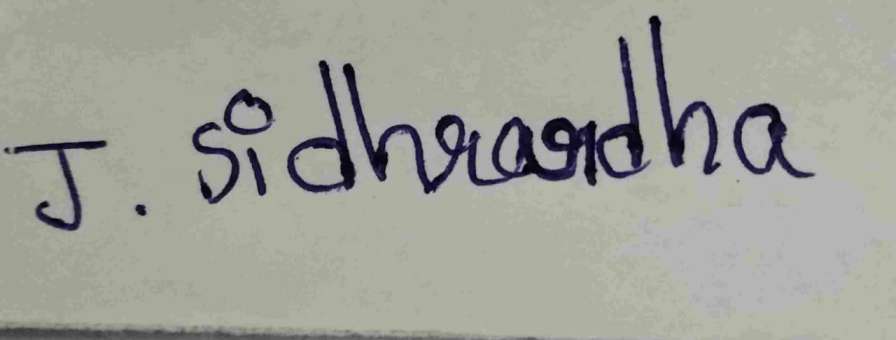 J. Sidhrardha